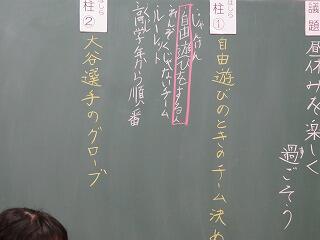 議題
昼休みを楽しく
過ごそう
す
はしら
柱①
自由遊びのときのチーム決め
自由遊びをする人
じゃないチーム
ルーレット
高学年から順番
はしら
柱②
大谷選手のグローブ